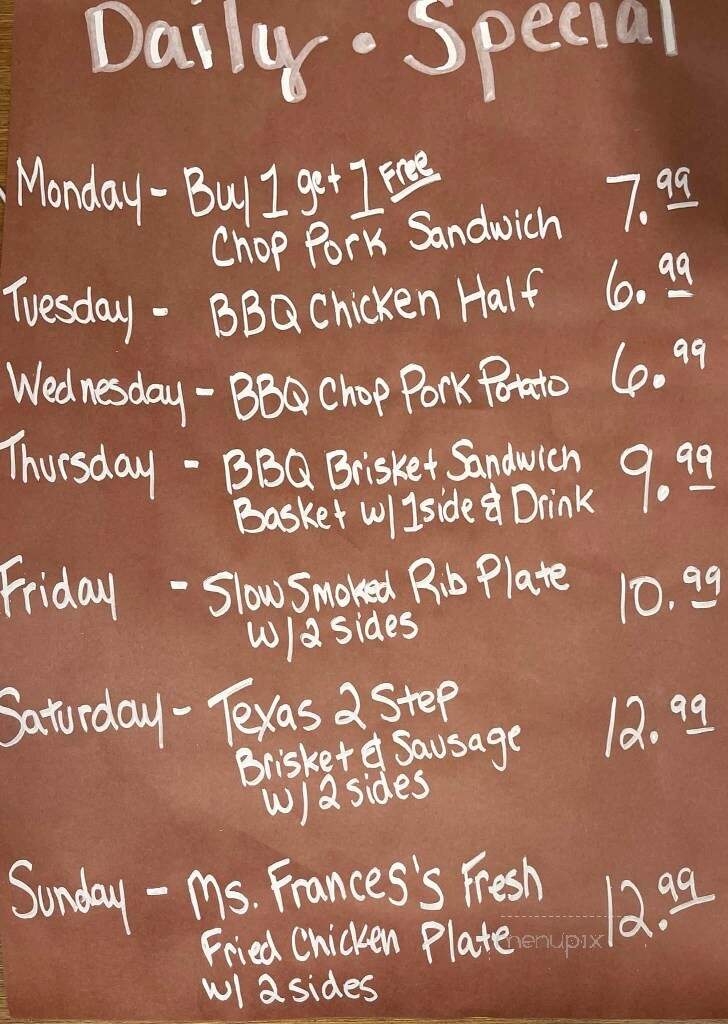 Daily • Special
Monday - Buy 1 get 1 Free 7.99
Chop Pork Sandwich
Tuesday - BBQ Chicken Half 6.99
Wednesday - BBQ Chop Pork Potato 6.99
Thursday - BBQ Brisket Sandwich 9.99
Basket w/ 1 side & Drink
Friday - Slow Smoked Rib Plate 10.99
w/ 2 sides
Saturday - Texas 2 Step 12.99
Brisket & Sausage
w/ 2 sides
Sunday - Ms. Frances's Fresh 12.99
Fried Chicken Plate
w/ 2 sides
menupix